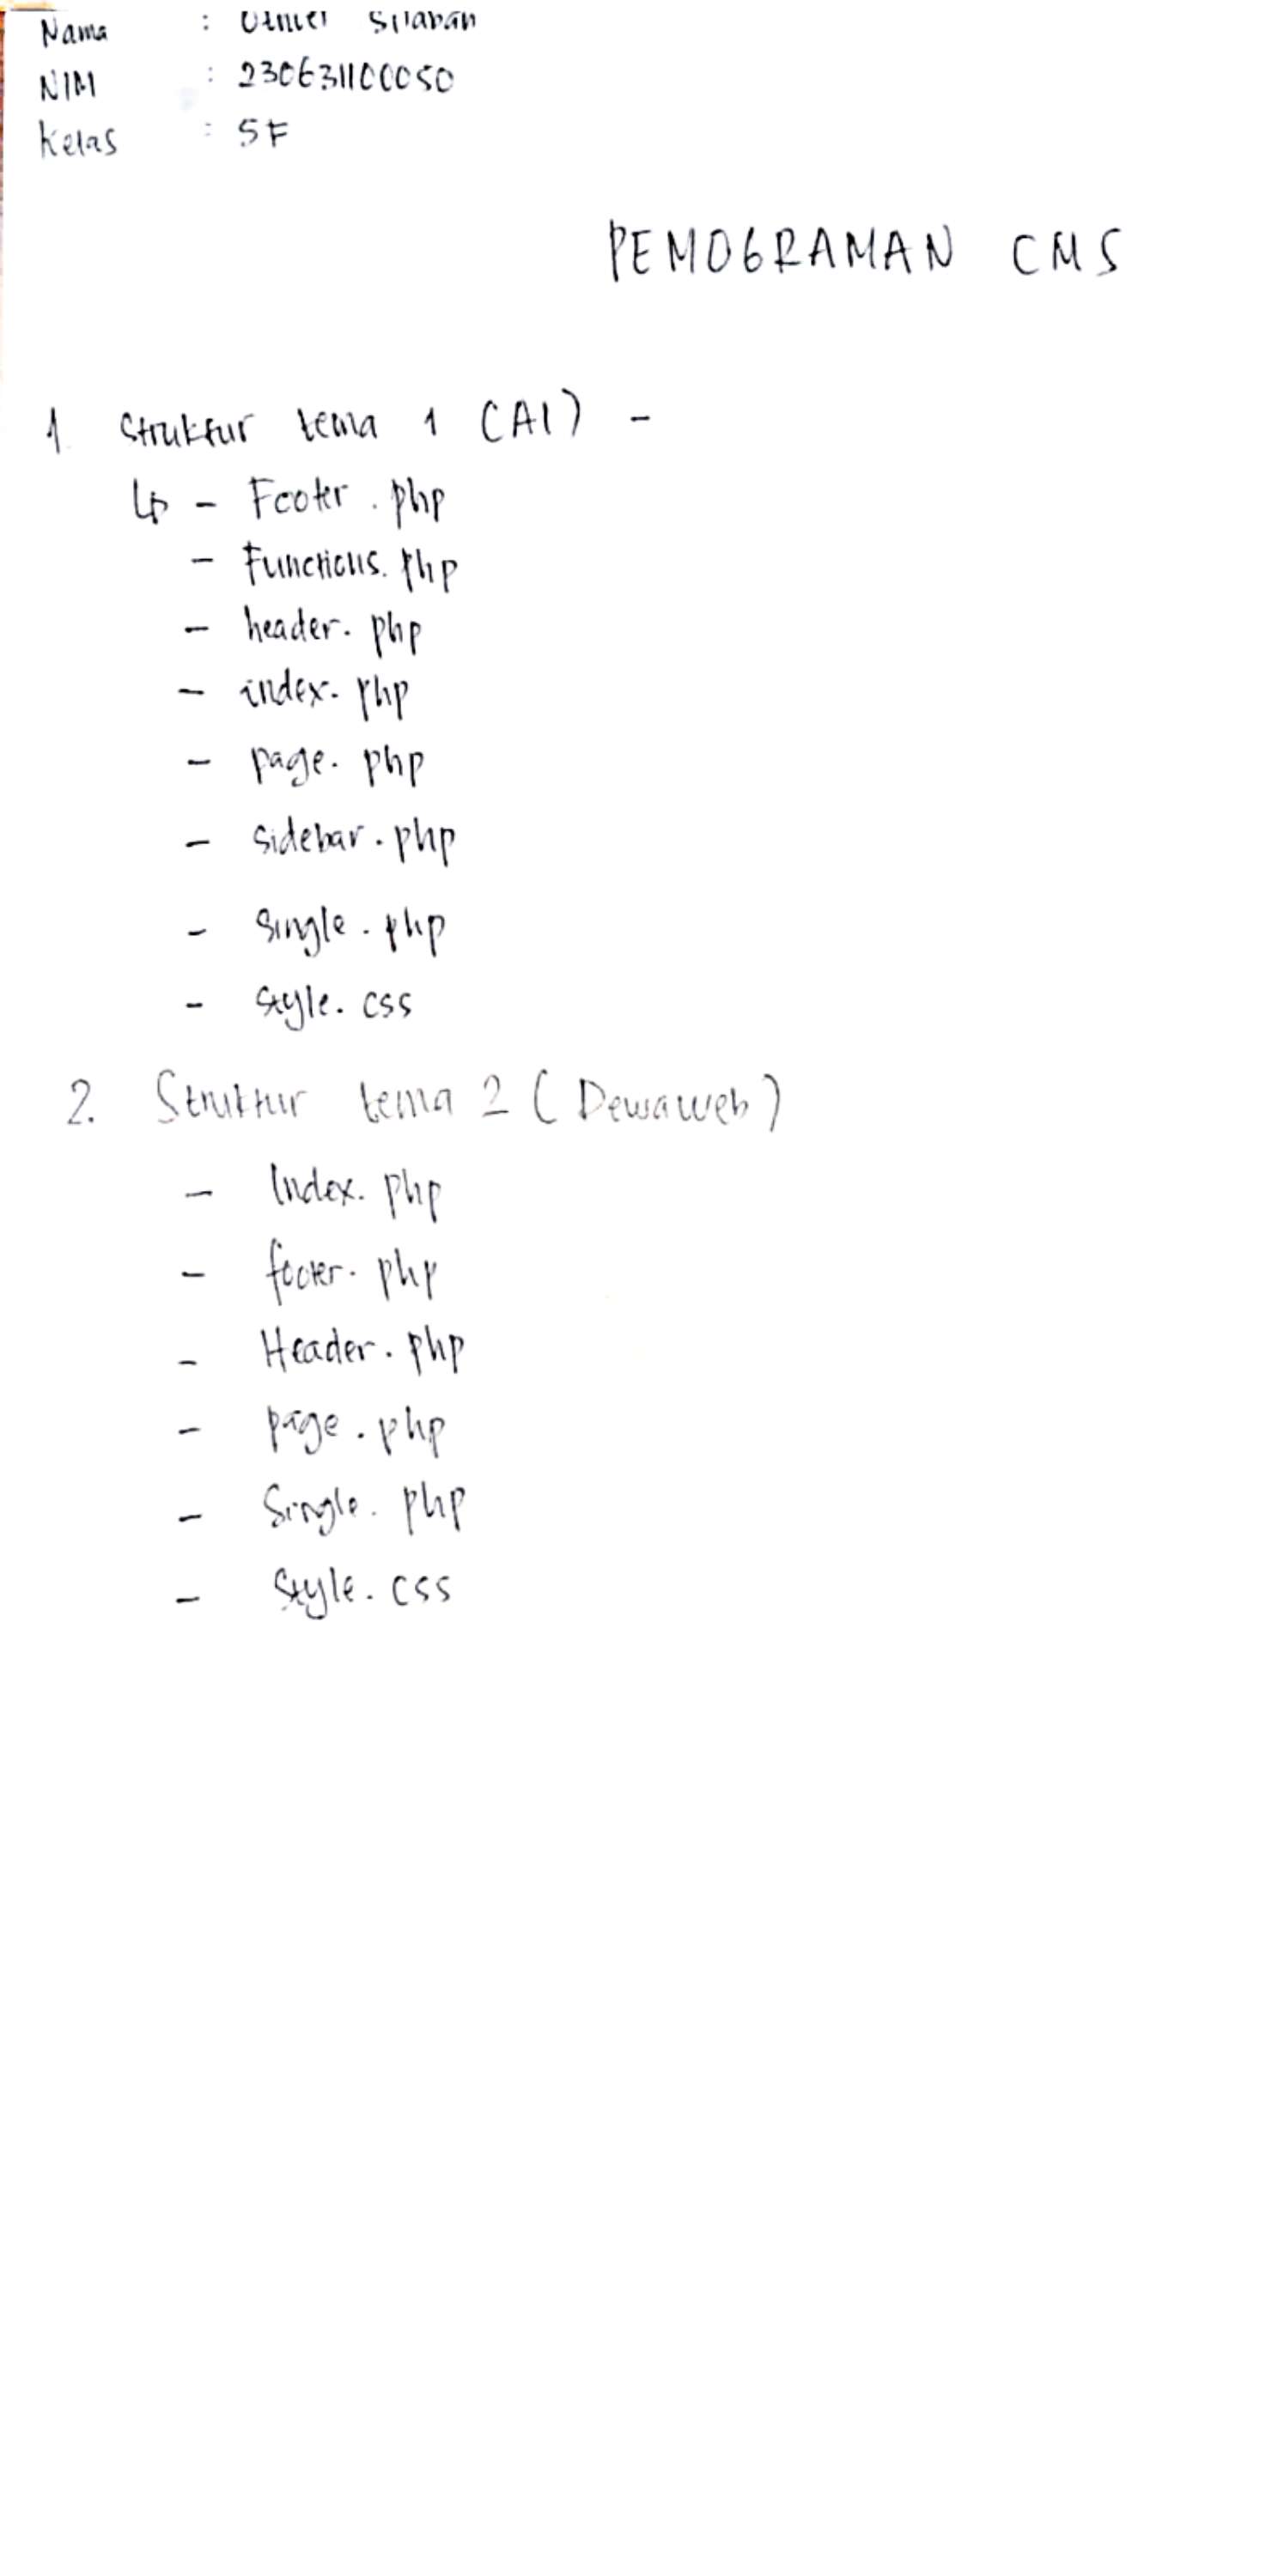 Nama :
NIM : 230631100050
Kelas : 5F
PEMOGRAMAN CMS
1 Struktur tema 1 (AI) -
↳ - Footer . php
- Functions. php
- header. php
- index. php
- page. php
- sidebar. php
- Single. php
- Style. css
2. Struktur tema 2 (Dewaweb)
- Index. php
- footer. php
- Header. php
- page. php
- Single. php
- Style. css